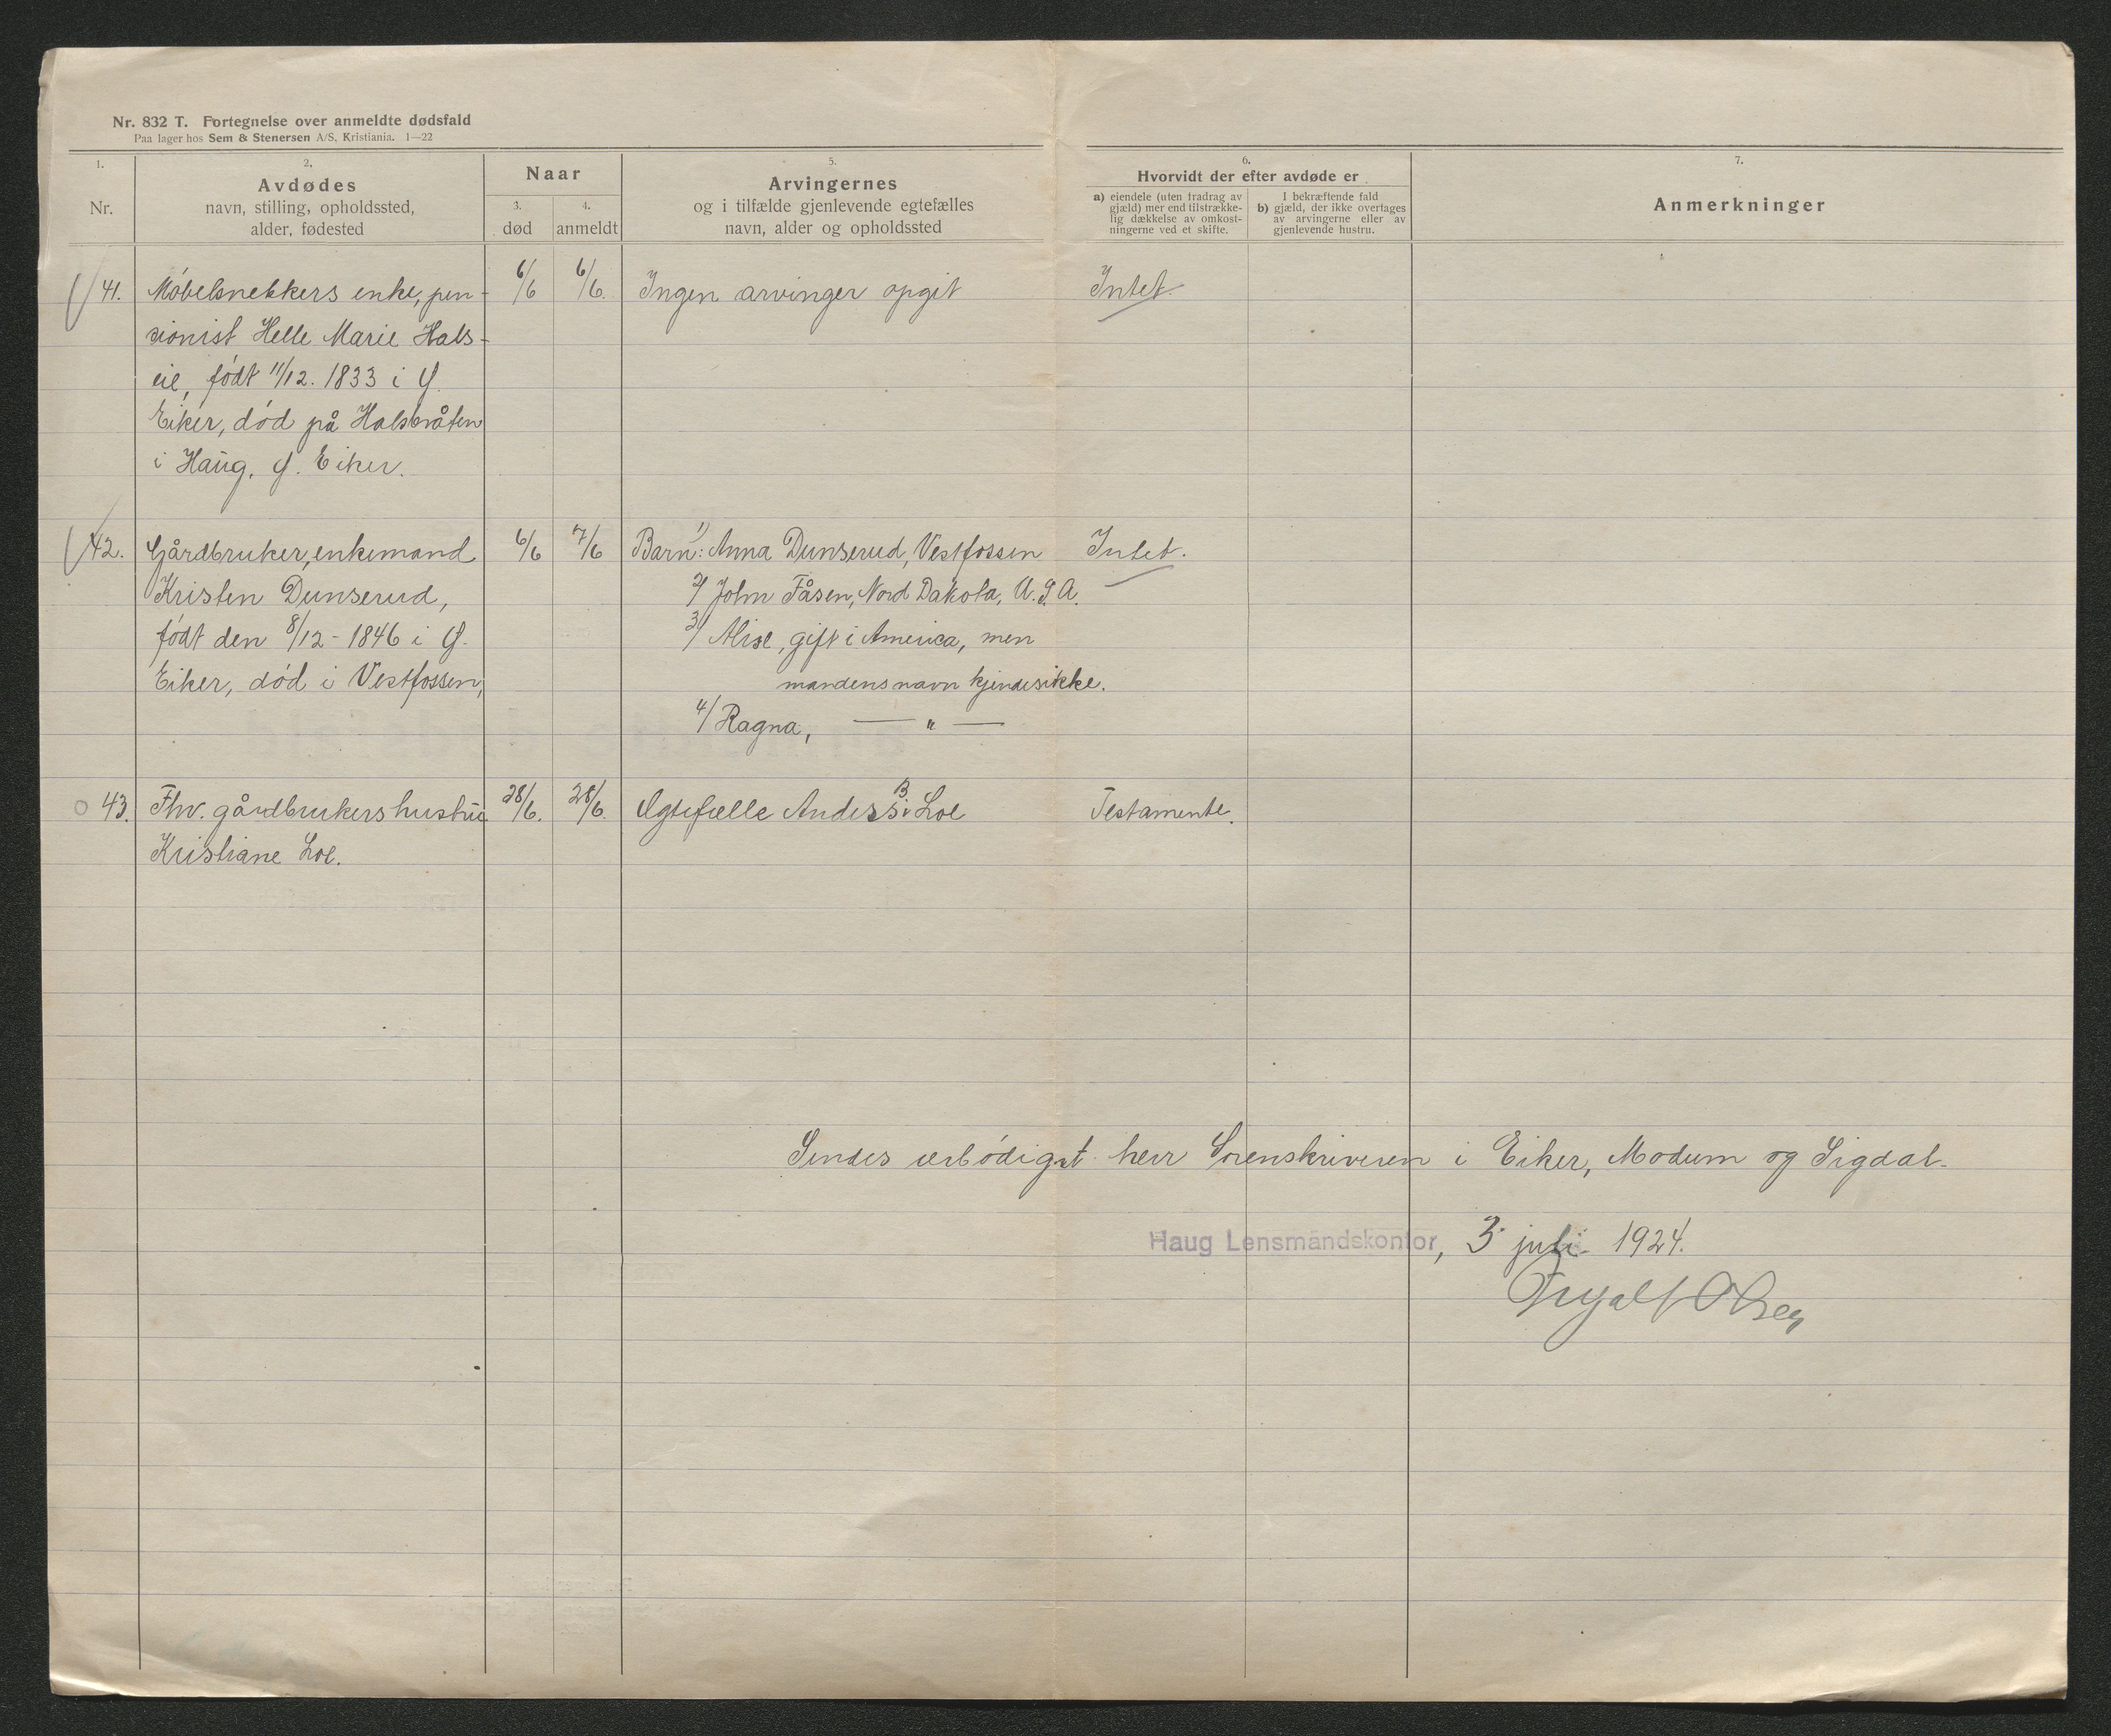 Nr. 832 T. Fortegnelse over anmeldte dødsfald
Paa lager hos Sem & Stenersen A/S, Kristiania. 1—22
1.
Nr.
2.
Avdødes
navn, stilling, opholdssted,
alder, fødested
Naar
3.
død
4.
anmeldt
5.
Arvingernes
og i tilfælde gjenlevende egtefælles
navn, alder og opholdssted
6.
Hvorvidt der efter avdøde er
a) eiendele (uten fradrag av
gjæld) mer end tilstrække-
lig dækkelse av omkost-
ningerne ved et skifte.
I bekræftende fald
b) gjæld, der ikke overtages
av arvingerne eller av
gjenlevende hustru.
7.
Anmerkninger
41. Møbelsnekkers enke, pen- 6/6 6/6. Ingen arvinger opgit Intet.
sionist Helle Marie Hals-
eie, født 11/12. 1833 i Ø.
Eiker, død på Halsbråten
i Haug, Ø. Eiker.
42. Gårdbruker, enkemand 6/6 7/6 Barn: 1) Anna Dunserud, Vestfossen Intet.
Kristen Dunserud, 2/ John Fåsen, Nord Dakota, U.S.A.
født den 8/12-1846 i Ø. 3/ Alise, gift i America, men
Eiker, død i Vestfossen, mandens navn kjendes ikke.
4/ Ragna, — " —
43. Fhv. gårdbrukers hustru 28/6. 28/6. Egtefælle Anders B Loe Testamente.
Kristiane Loe.
Sendes ærbødigst herr Sorenskriveren i Eiker, Modum og Sigdal.
Haug Lensmandskontor, 3 juli 1924.
Olsen